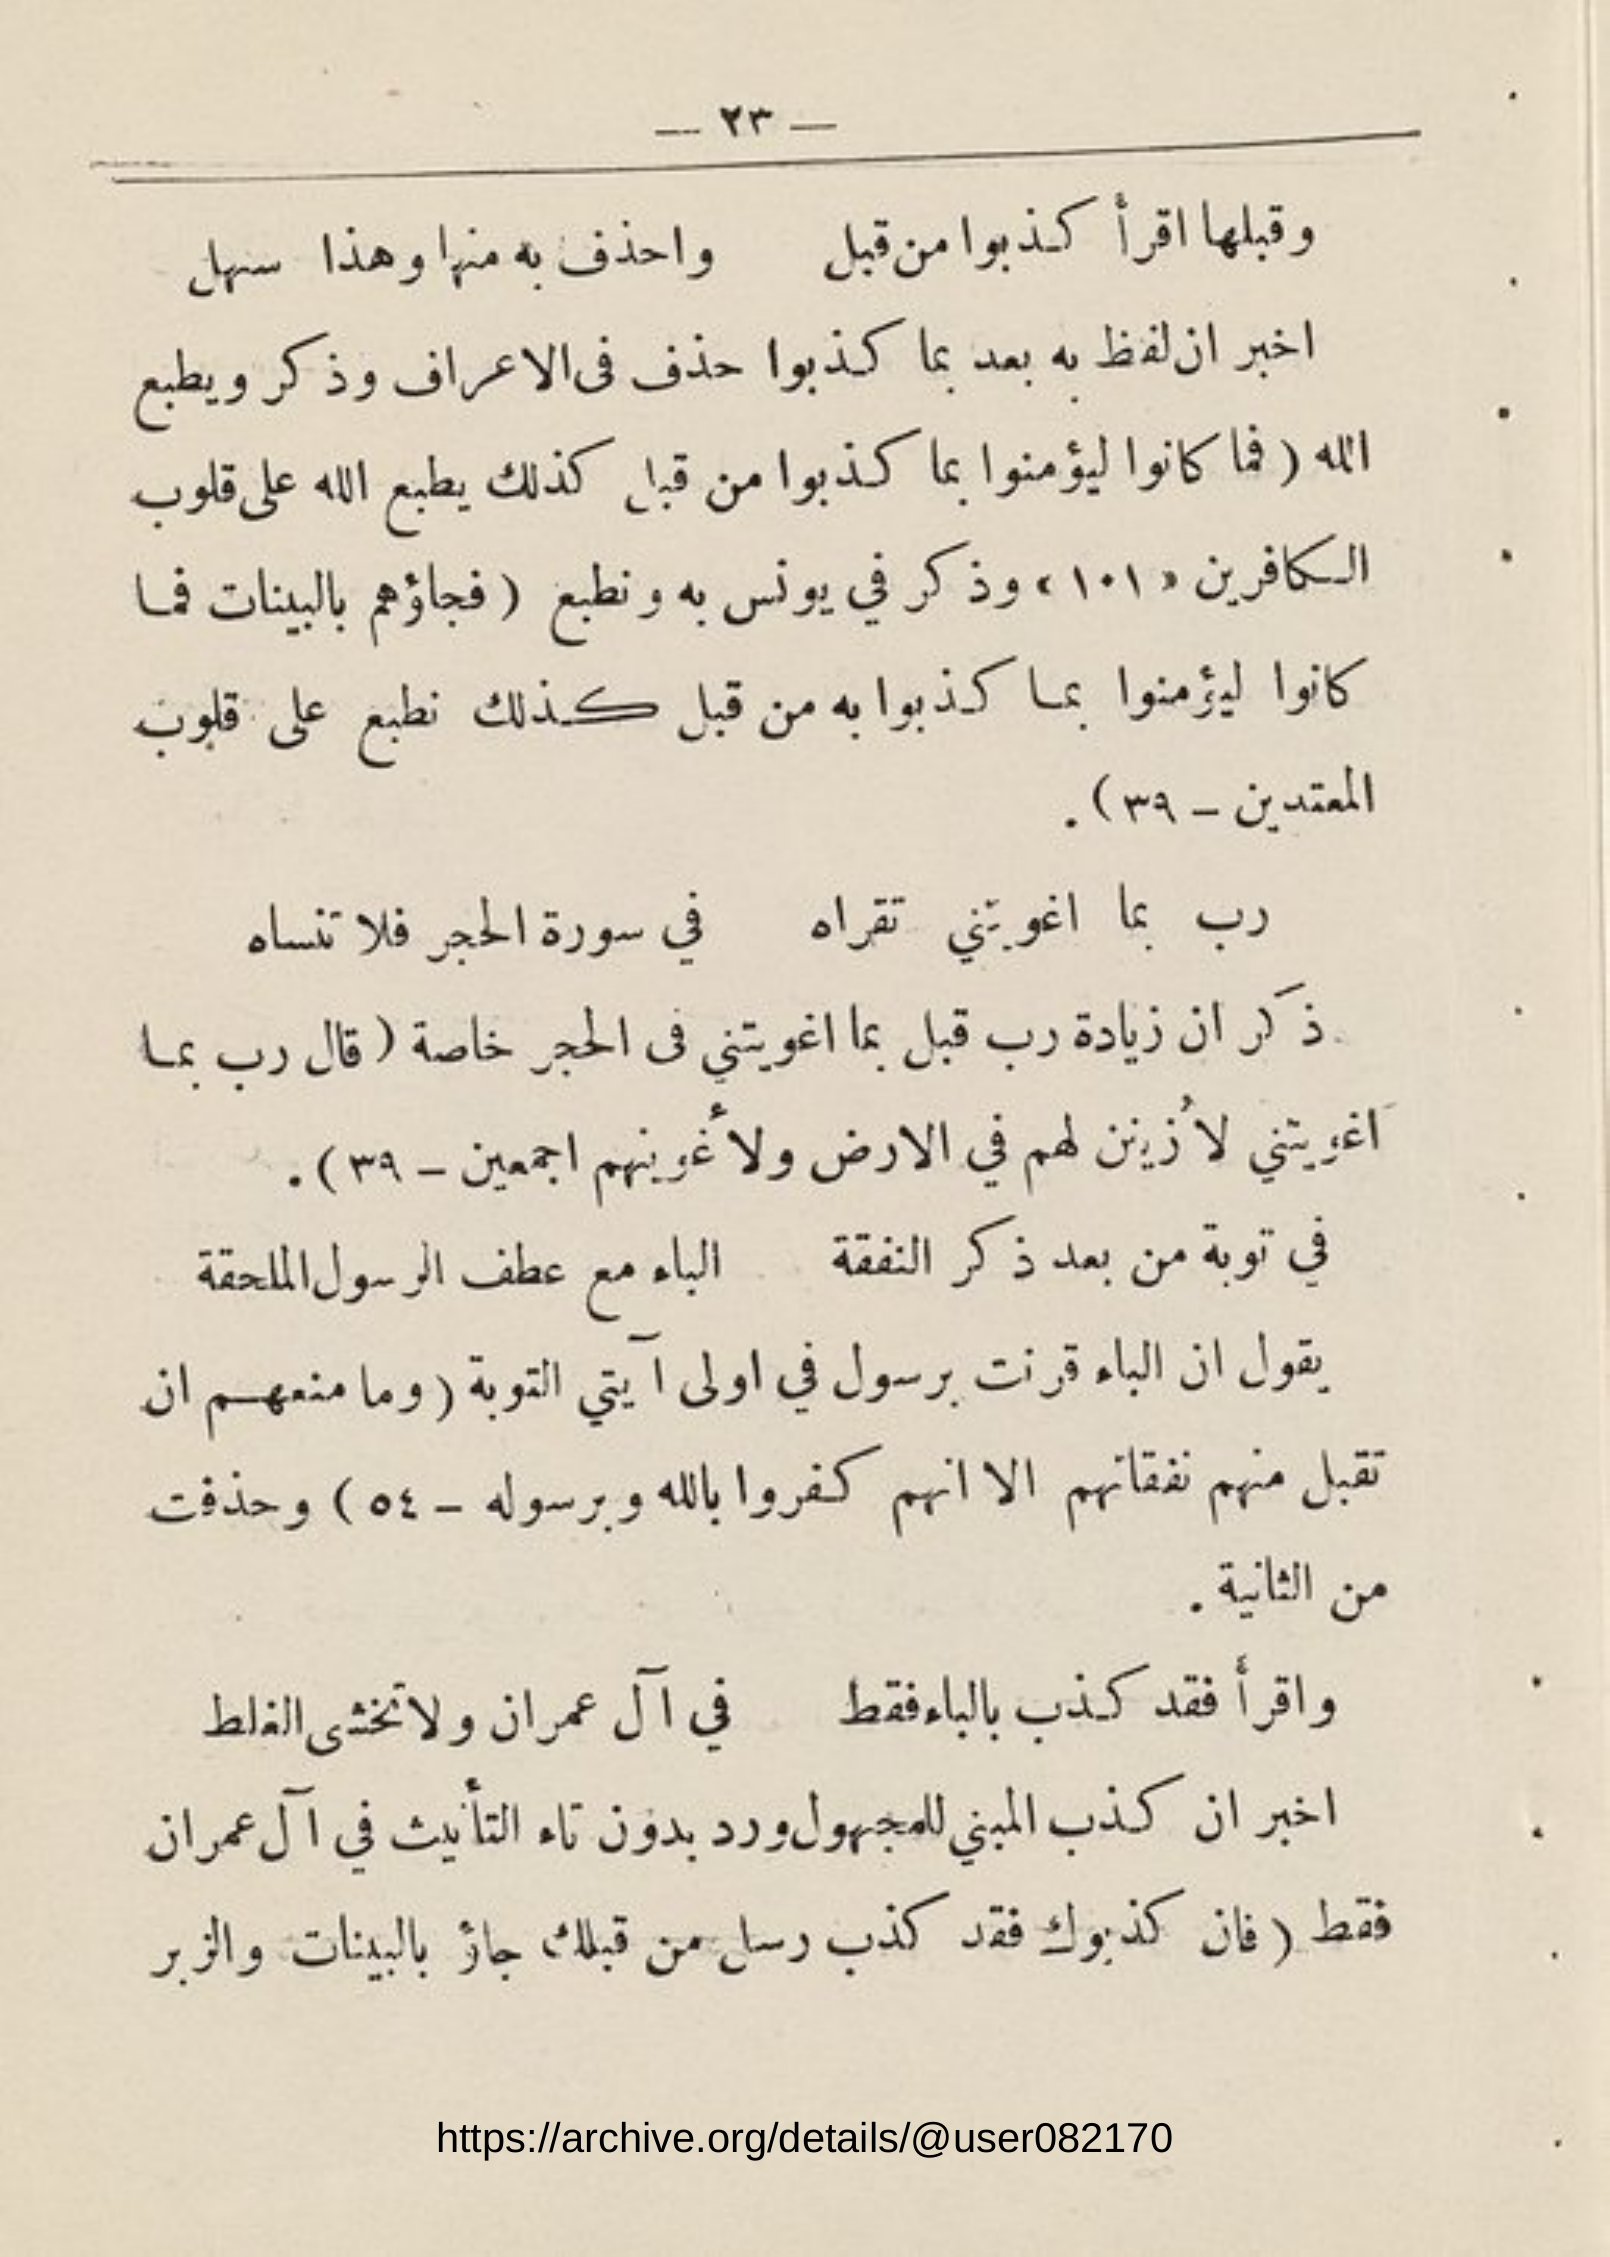 — ٢٣ —
وقبلها اقرأ كذبوا من قبل واحذف به منها وهذا سهل
اخبر ان لفظ به بعد بما كذبوا حذف فى الاعراف وذكر ويطبع
الله ( فما كانوا ليؤمنوا بما كذبوا من قبل كذلك يطبع الله على قلوب
الكافرين « ١٠١ » وذكر في يونس به ونطبع ( فجاؤهم بالبينات فما
كانوا ليؤمنوا بما كذبوا به من قبل كذلك نطبع على قلوب
المعتدين – ٣٩ ) .
رب بما اغويتني تقراه في سورة الحجر فلا تنساه
ذكر ان زيادة رب قبل بما اغويتني فى الحجر خاصة ( قال رب بما
اغويتني لأزينن لهم في الارض ولأغوينهم اجمعين – ٣٩ ) .
في توبة من بعد ذكر النفقة الباء مع عطف الرسول الملحقة
يقول ان الباء قرنت برسول في اولى آيتي التوبة ( وما منعهم ان
تقبل منهم نفقاتهم الا انهم كفروا بالله وبرسوله – ٥٤ ) وحذفت
من الثانية .
واقرأ فقد كذب بالباء فقط في آل عمران ولا تخشى الغلط
اخبر ان كذب المبني للمجهول ورد بدون تاء التأنيث في آل عمران
فقط ( فان كذبوك فقد كذب رسل من قبلك جاؤ بالبينات والزبر
https://archive.org/details/@user082170